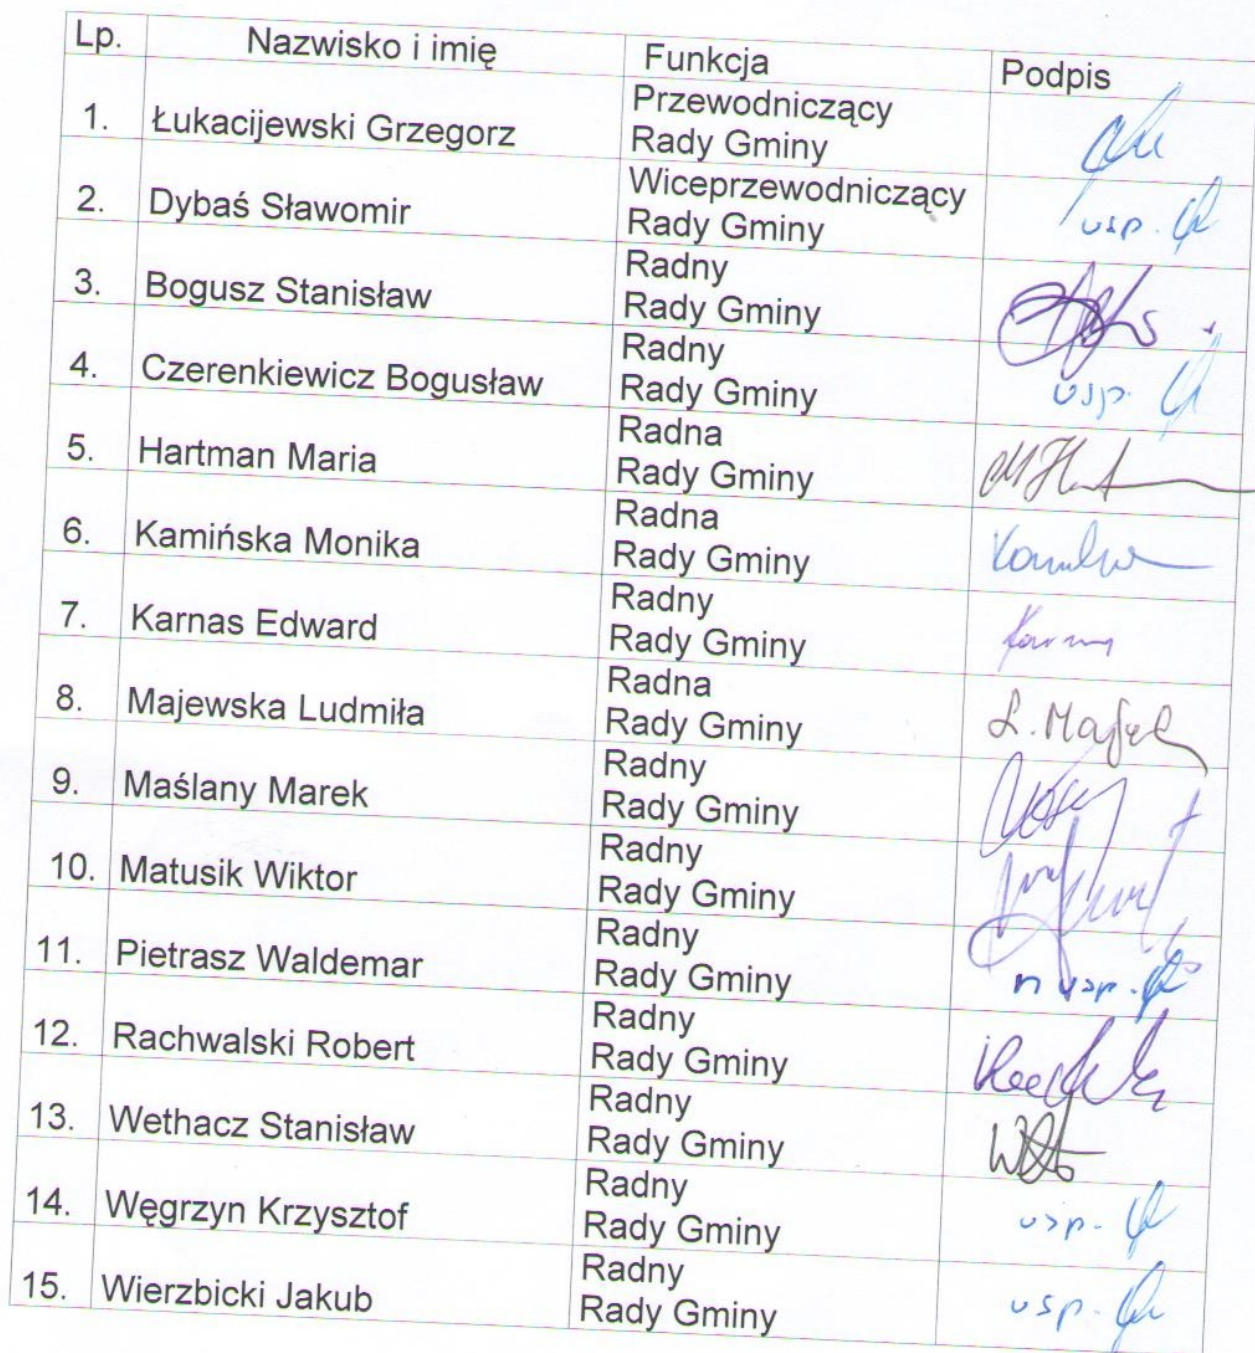 Lp. Nazwisko i imię Funkcja Podpis
1. Łukacijewski Grzegorz Przewodniczący
Rady Gminy
2. Dybaś Sławomir Wiceprzewodniczący
Rady Gminy usp.
3. Bogusz Stanisław Radny
Rady Gminy
4. Czerenkiewicz Bogusław Radny
Rady Gminy usp.
5. Hartman Maria Radna
Rady Gminy
6. Kamińska Monika Radna
Rady Gminy
7. Karnas Edward Radny
Rady Gminy
8. Majewska Ludmiła Radna
Rady Gminy
9. Maślany Marek Radny
Rady Gminy
10. Matusik Wiktor Radny
Rady Gminy
11. Pietrasz Waldemar Radny
Rady Gminy n usp.
12. Rachwalski Robert Radny
Rady Gminy
13. Wethacz Stanisław Radny
Rady Gminy
14. Węgrzyn Krzysztof Radny
Rady Gminy usp.
15. Wierzbicki Jakub Radny
Rady Gminy usp.